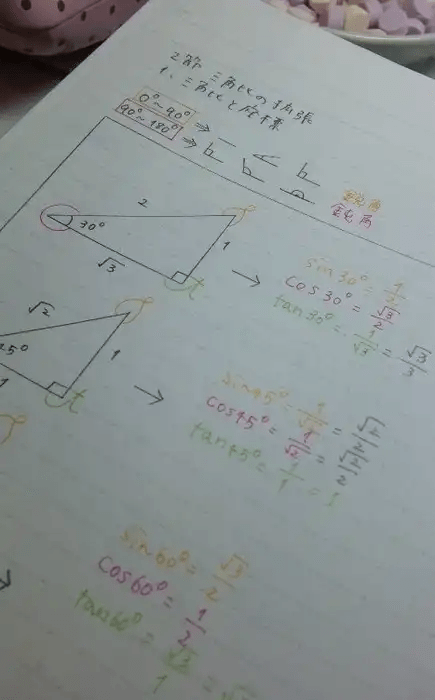 2節 三角比の拡張
1. 三角比と座標
0°~90° ⇒
90°~180° ⇒
鋭角
鈍角
2
30°
1
√3
→ sin30° = 1/2
cos30° = √3/2
tan30° = 1/√3 = √3/3
√2
45°
1
1
→ sin45° = 1/√2 = √2/2
cos45° = 1/√2 = √2/2
tan45° = 1/1 = 1
sin60° = √3/2
cos60° = 1/2
tan60° = √3/1 = √3